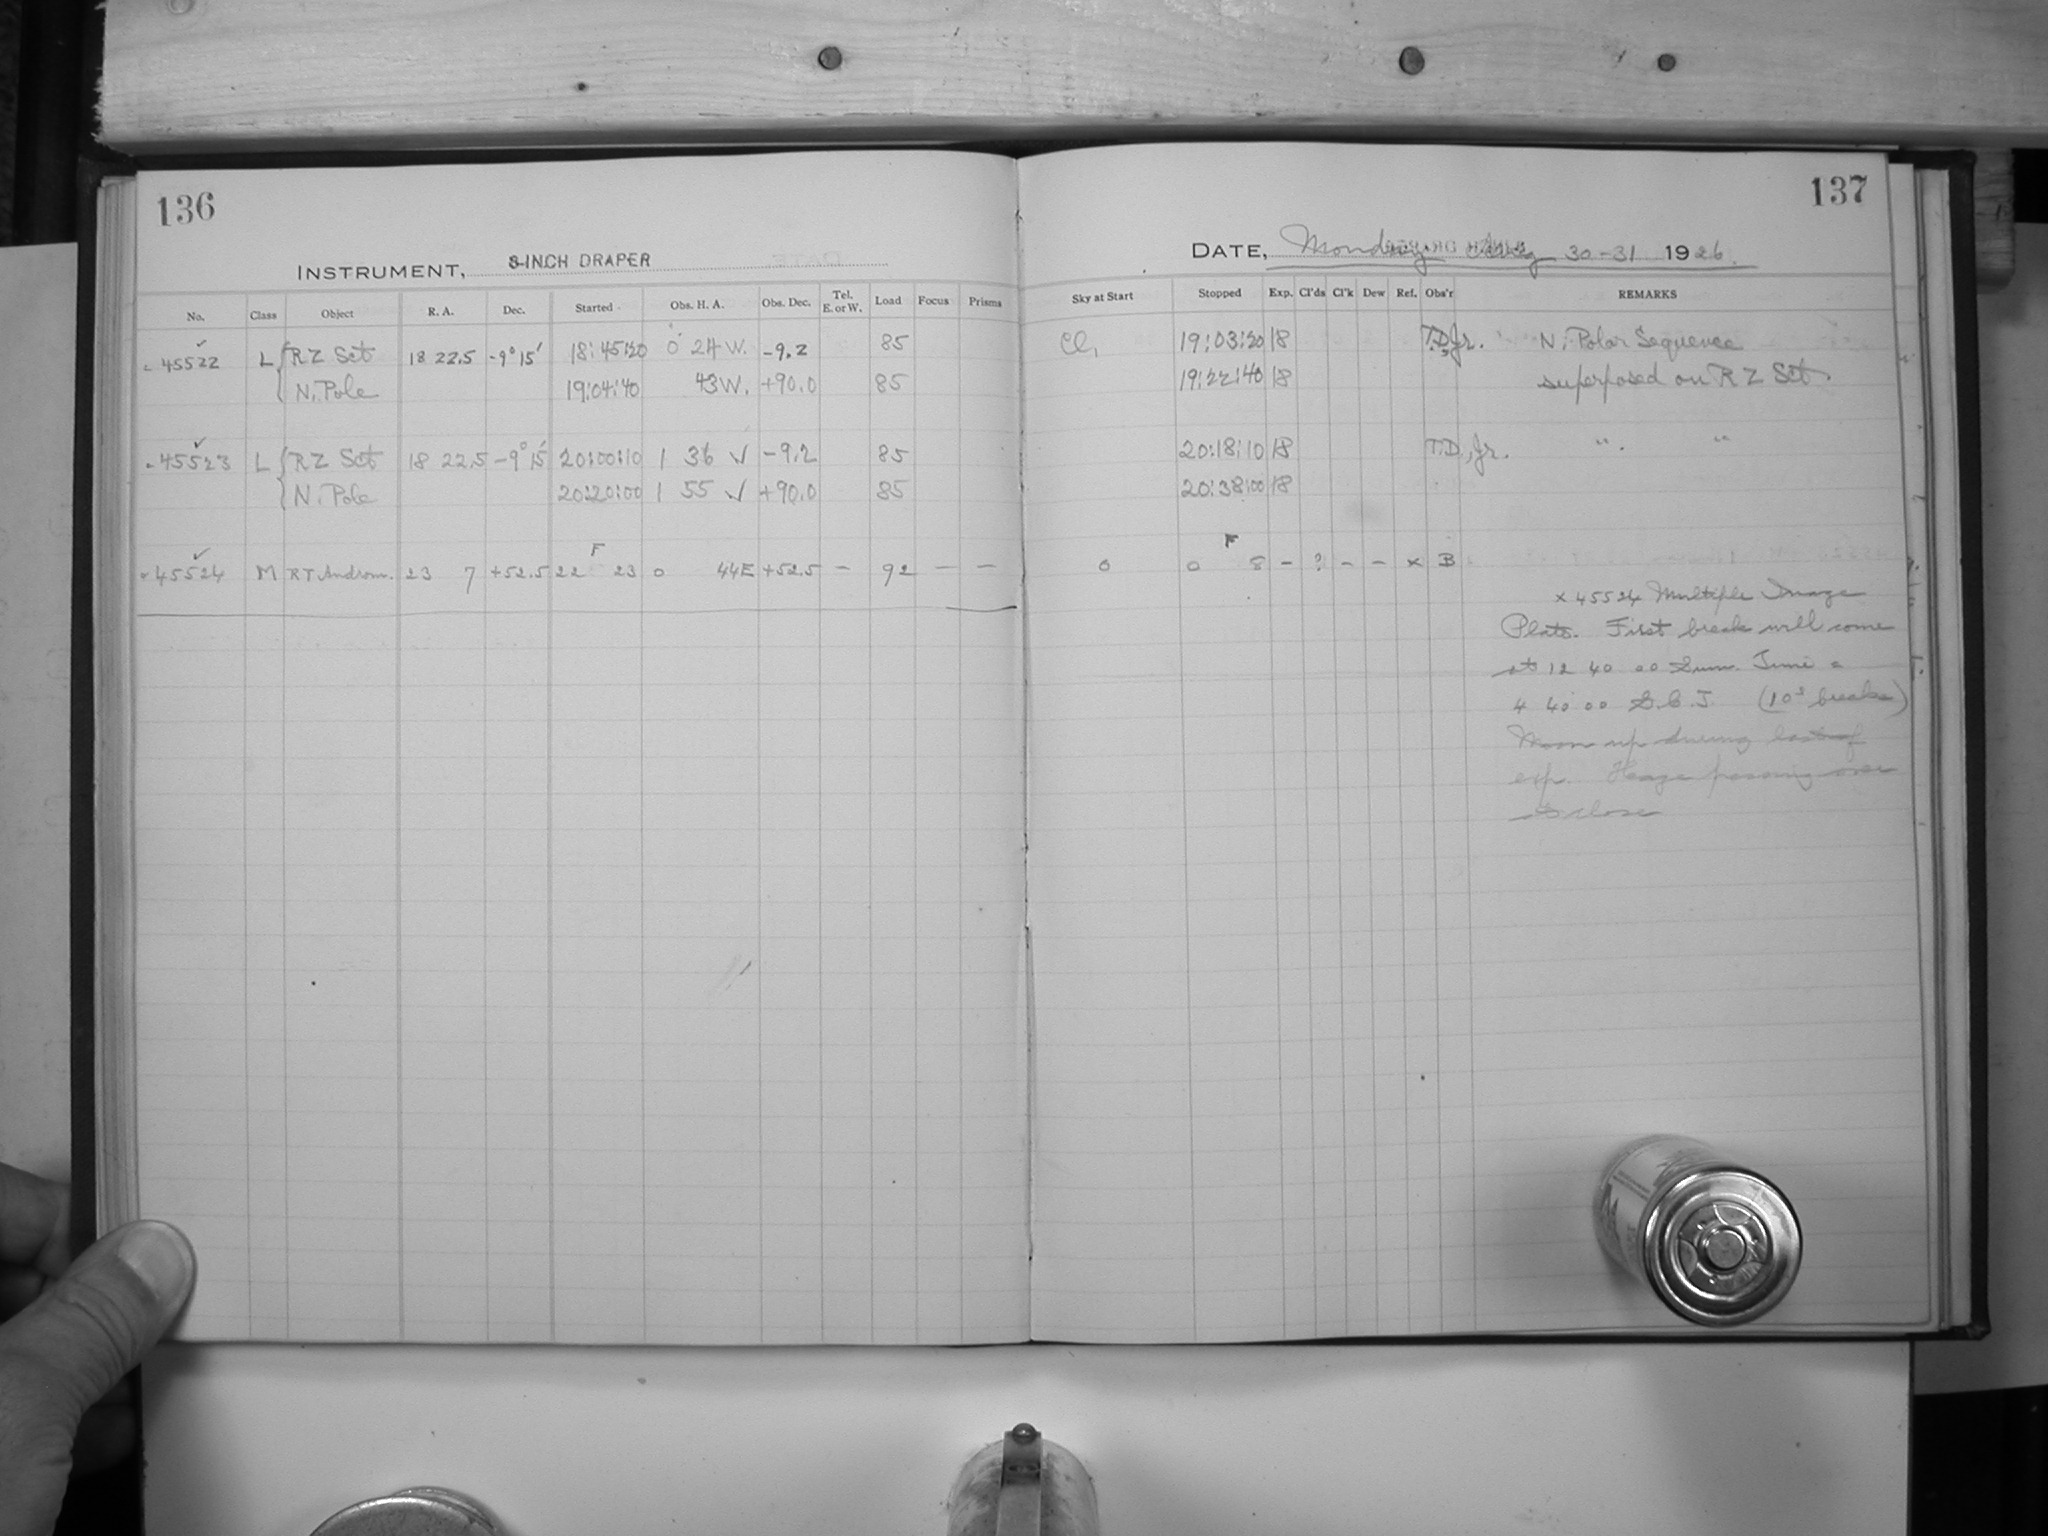 136
INSTRUMENT, 8-INCH DRAPER
No. Class Object R. A. Dec. Started Obs. H. A. Obs. Dec. Tel. E. or W. Load Focus Prisms
45522 L RZ Sct 18 22.5 -9° 15' 18:45:20 0 24 W. -9.2 85
N. Pole 19:04:40 43 W. +90.0 85
45523 L RZ Sct 18 22.5 -9° 15' 20:00:10 1 36 -9.2 85
N. Pole 20:20:00 1 55 +90.0 85
45524 M RT Androm. 23 7 +52.5 22 F 23 0 44E +52.5 — 92 — —
137
DATE, Monday Aug 30-31 1926.
Sky at Start Stopped Exp. Cl'ds Cl'k Dew Ref. Obs'r REMARKS
Cl, 19:03:20 18 T.D., Jr. N. Polar Sequence
19:22:40 18 superposed on RZ Sct.
20:18:10 18 T.D., Jr. " "
20:38:00 18
0 0 F 8 - ? - - x B
x 45524 Multiple Image
Plate. First break will come
at 12 40 00 Sum. Time =
4 40 00 G.C.T. (10s breaks)
Moon up during last of
exp. Haze passing over
at close